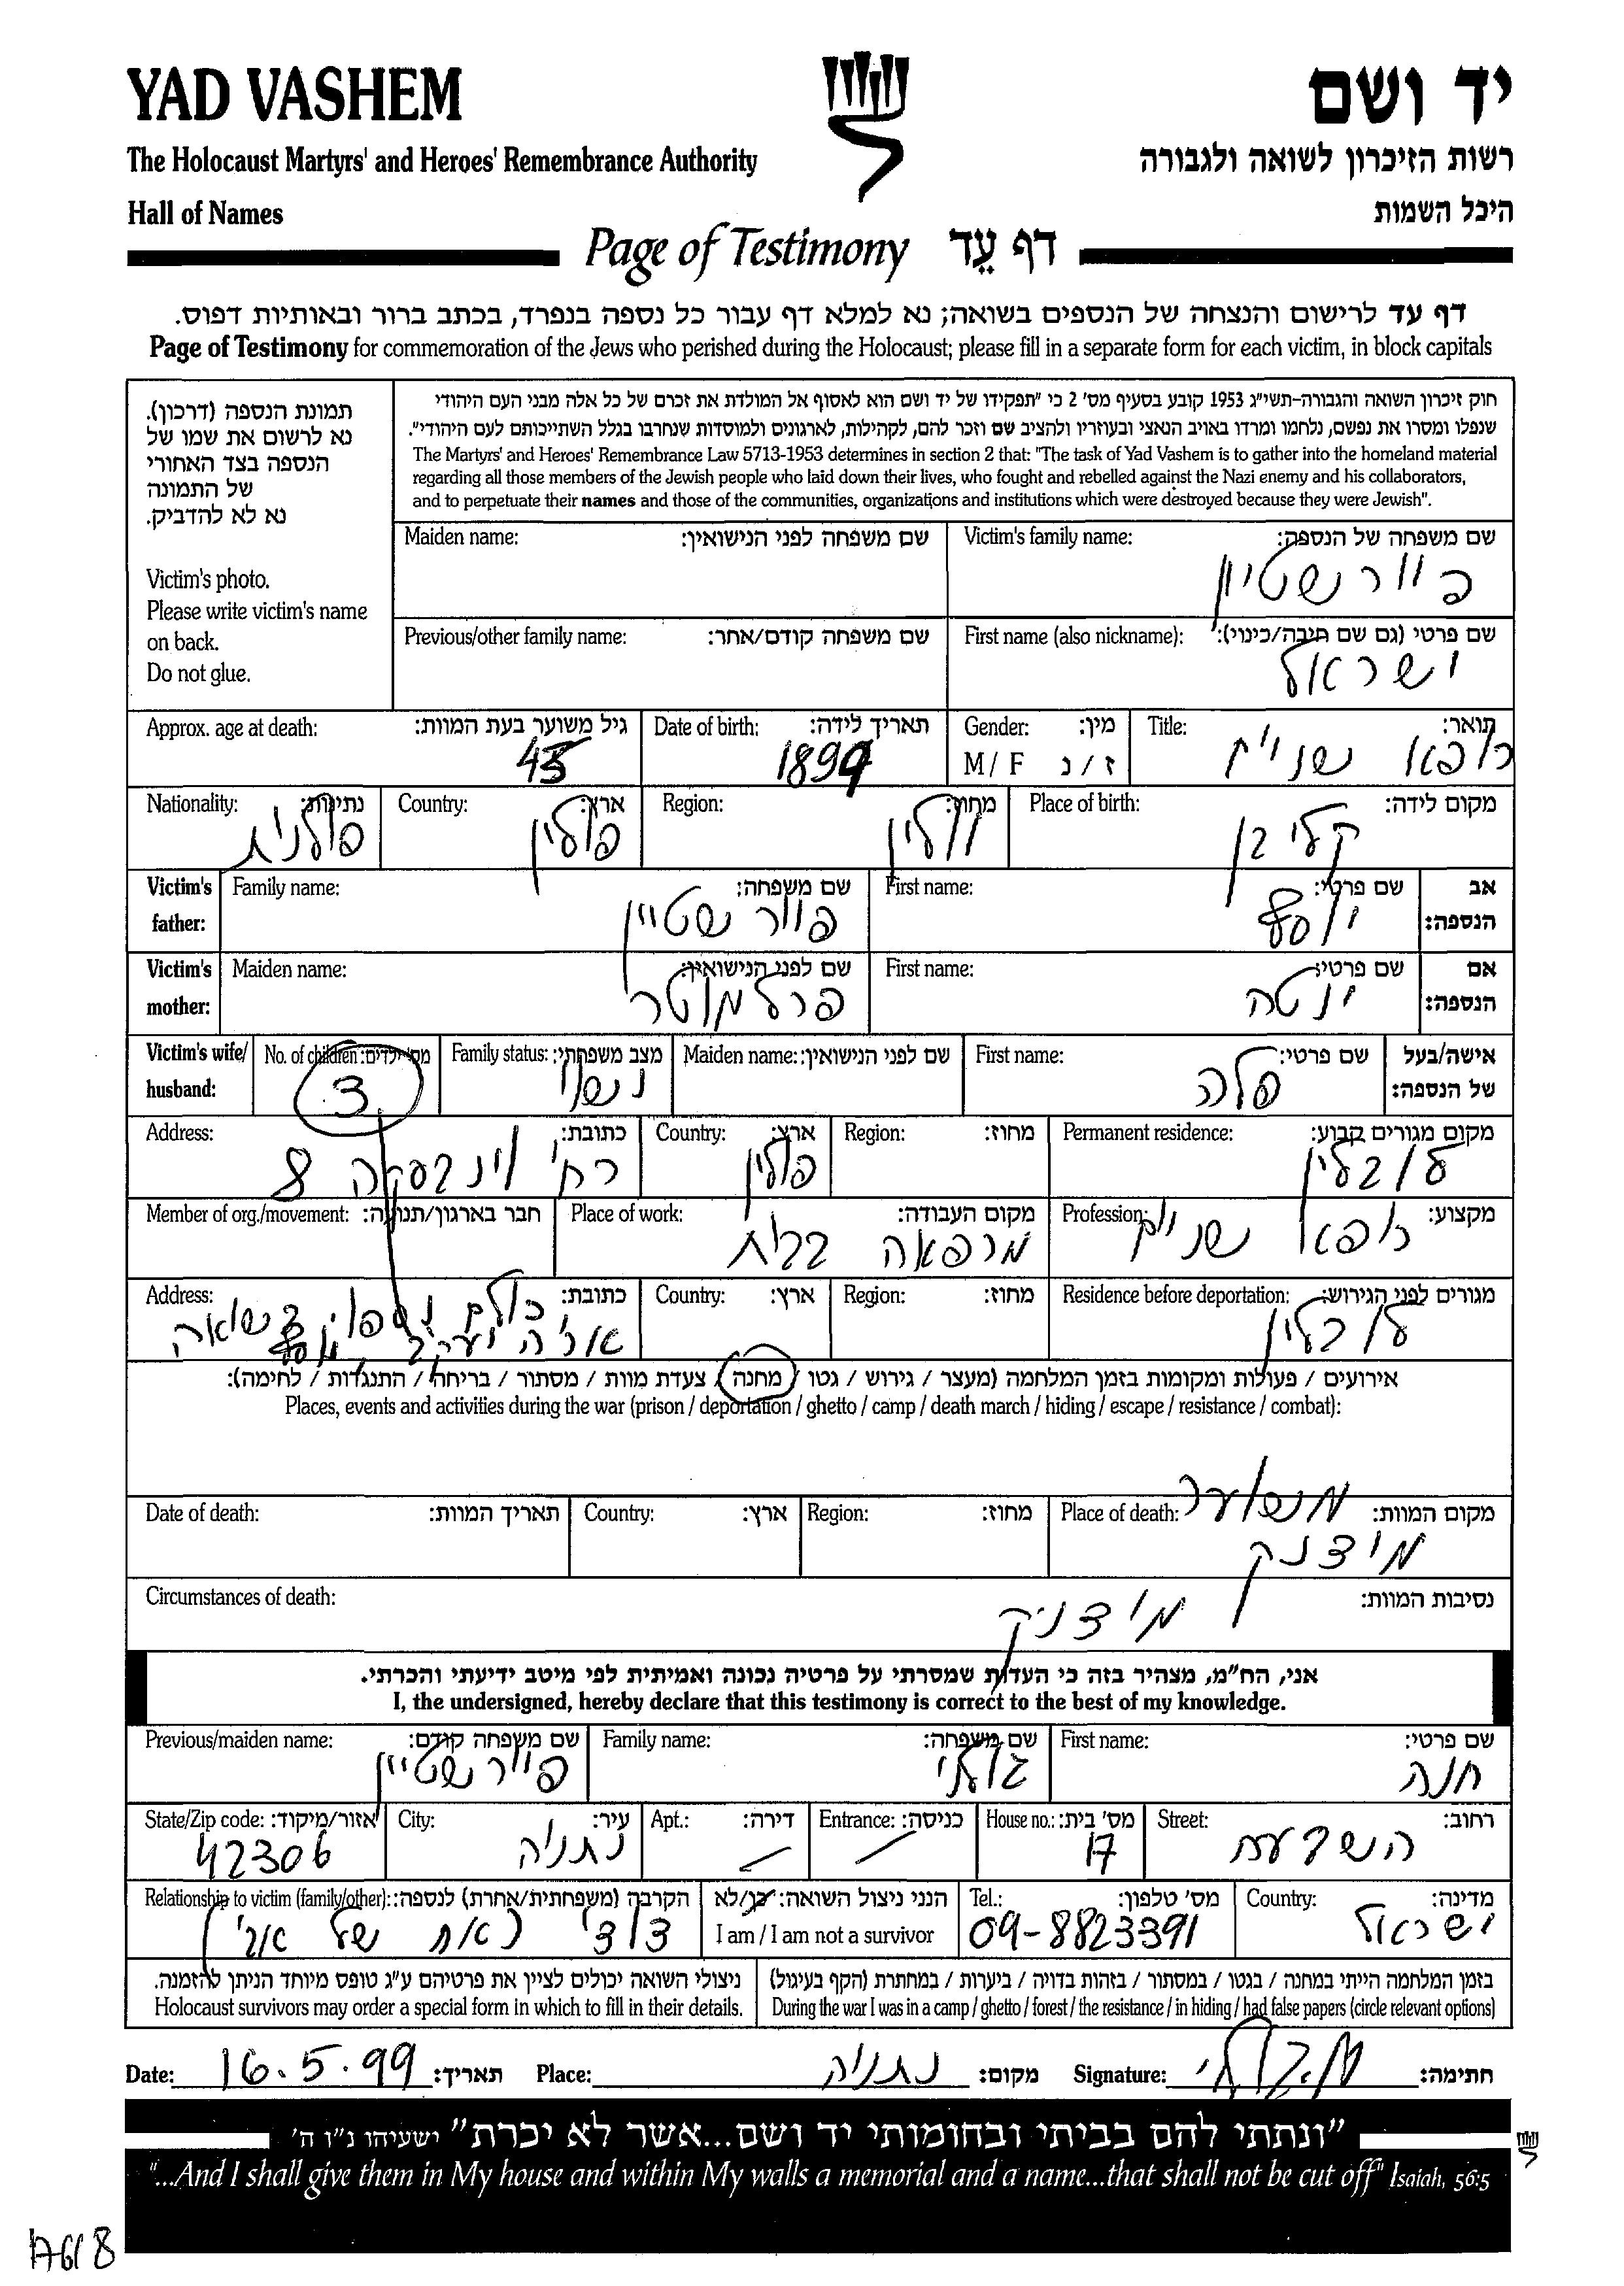 YAD VASHEM
יד ושם
The Holocaust Martyrs' and Heroes' Remembrance Authority
רשות הזיכרון לשואה ולגבורה
Hall of Names
היכל השמות
Page of Testimony דף עֵד
דף עד לרישום והנצחה של הנספים בשואה; נא למלא דף עבור כל נספה בנפרד, בכתב ברור ובאותיות דפוס.
Page of Testimony for commemoration of the Jews who perished during the Holocaust; please fill in a separate form for each victim, in block capitals
תמונת הנספה (דרכון).
נא לרשום את שמו של
הנספה בצד האחורי
של התמונה
נא לא להדביק.
Victim's photo.
Please write victim's name
on back.
Do not glue.
חוק זיכרון השואה והגבורה-תשי"ג 1953 קובע בסעיף מס' 2 כי "תפקידו של יד ושם הוא לאסוף אל המולדת את זכרם של כל אלה מבני העם היהודי
שנפלו ומסרו את נפשם, נלחמו ומרדו באויב הנאצי ובעוזריו ולהציב שם וזכר להם, לקהילות, לארגונים ולמוסדות שנחרבו בגלל השתייכותם לעם היהודי".
The Martyrs' and Heroes' Remembrance Law 5713-1953 determines in section 2 that: "The task of Yad Vashem is to gather into the homeland material
regarding all those members of the Jewish people who laid down their lives, who fought and rebelled against the Nazi enemy and his collaborators,
and to perpetuate their names and those of the communities, organizations and institutions which were destroyed because they were Jewish".
Victim's family name: שם משפחה של הנספה:
פיורשטיין
Maiden name: שם משפחה לפני הנישואין:
First name (also nickname): שם פרטי (גם שם חיבה/כינוי):
ישראל
Previous/other family name: שם משפחה קודם/אחר:
Title: תואר:
רופא שניים
Gender: מין:
M / F ז / נ
Date of birth: תאריך לידה:
1899
Approx. age at death: גיל משוער בעת המוות:
45
Place of birth: מקום לידה:
Region: מחוז:
וולין
Country: ארץ:
פולין
Nationality: נתינות:
פולנית
Victim's father: אב הנספה:
First name: שם פרטי:
יוסף
Family name: שם משפחה:
פיורשטיין
Victim's mother: אם הנספה:
First name: שם פרטי:
ינטה
Maiden name: שם לפני הנישואין:
פרלמוטר
Victim's wife/husband: אישה/בעל של הנספה:
First name: שם פרטי:
פלה
Maiden name: שם לפני הנישואין:
Family status: מצב משפחתי:
נשוי
No. of children: מס' ילדים:
3
Permanent residence: מקום מגורים קבוע:
לובלין
Region: מחוז:
Country: ארץ:
פולין
Address: כתובת:
רח' 8
Profession: מקצוע:
רופא שניים
Place of work: מקום העבודה:
מרפאה בבית
Member of org./movement: חבר בארגון/תנועה:
Residence before deportation: מגורים לפני הגירוש:
לובלין
Region: מחוז:
Country: ארץ:
Address: כתובת:
כולם נספו בשואה
יעקב, יוסף
אירועים / פעולות ומקומות בזמן המלחמה (מעצר / גירוש / גטו / מחנה / צעדת מוות / מסתור / בריחה / התנגדות / לחימה):
Places, events and activities during the war (prison / deportation / ghetto / camp / death march / hiding / escape / resistance / combat):
Place of death: מקום המוות:
משוער
מידנק
Region: מחוז:
Country: ארץ:
Date of death: תאריך המוות:
Circumstances of death: נסיבות המוות:
מידניק
אני, הח"מ, מצהיר בזה כי העדות שמסרתי על פרטיה נכונה ואמיתית לפי מיטב ידיעתי והכרתי.
I, the undersigned, hereby declare that this testimony is correct to the best of my knowledge.
First name: שם פרטי:
חנה
Family name: שם משפחה:
Previous/maiden name: שם משפחה קודם:
פיורשטיין
Street: רחוב:
House no.: מס' בית:
17
Entrance: כניסה:
Apt.: דירה:
City: עיר:
נתניה
State/Zip code: אזור/מיקוד:
42306
Country: מדינה:
ישראל
Tel.: מס' טלפון:
09-8823391
הנני ניצול השואה: כן/לא
I am / I am not a survivor
Relationship to victim (family/other): הקרבה (משפחתית/אחרת) לנספה:
דודי (אח של אבי)
בזמן המלחמה הייתי במחנה / בגטו / במסתור / בזהות בדויה / ביערות / במחתרת (הקף בעיגול)
During the war I was in a camp / ghetto / forest / the resistance / in hiding / had false papers (circle relevant options)
ניצולי השואה יכולים לציין את פרטיהם ע"ג טופס מיוחד הניתן להזמנה.
Holocaust survivors may order a special form in which to fill in their details.
Date: 16.5.99 תאריך: Place: נתניה מקום: Signature: חתימה:
"ונתתי להם בביתי ובחומותי יד ושם...אשר לא יכרת" ישעיהו נ"ו ה'
"...And I shall give them in My house and within My walls a memorial and a name...that shall not be cut off" Isaiah, 56:5